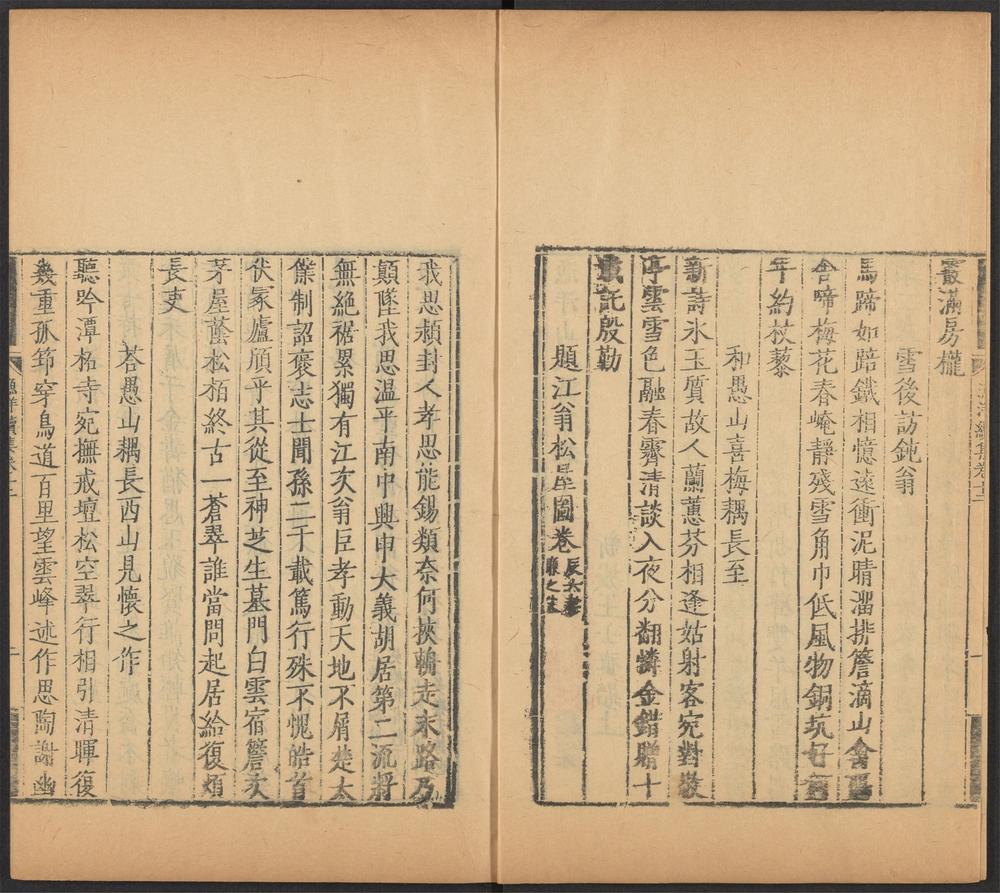 霰滿房櫳
雪後訪鈍翁
馬蹄如踣鐵相憶遠衝泥晴溜排簷滴山禽
舍啼梅花春崦靜殘雪角巾低風物銅坑好
年約杖藜
和愚山喜梅耦長至
新詩氷玉質故人蘭蕙芬相逢姑射客宛對敬
亭雲雪色融春霽清談入夜分翻憐金錯贈十
載託殷勤
題江翁松居圖卷
我思潁封人孝思能錫類奈何挾輈走末路乃
顛墜我思温平南中興申大義胡居第二流將
無絶裾累獨有江次翁巨孝動天地不屑楚太
僕制詔褒志士聞孫二千載篤行殊不愧皓首
伏冢廬頎乎其從至神芝生墓門白雲宿簷次
茅屋蔭松栢終古一蒼翠誰當問起居給復煩
長吏
荅愚山耦長西山見懷之作
聽吟潭柘寺宛撫戒壇松空翠行相引清暉復
幾重孤筇穿鳥道百里望雲峰述作思陶謝幽